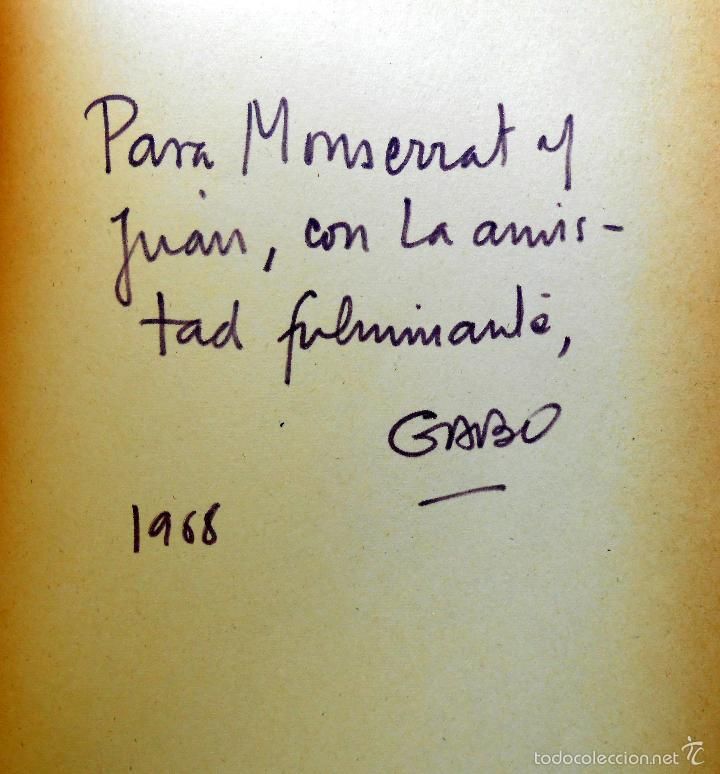 Para Monserrat y
Juan, con la amis-
tad fulminante,
GABO
1968
todocoleccion.net
TC